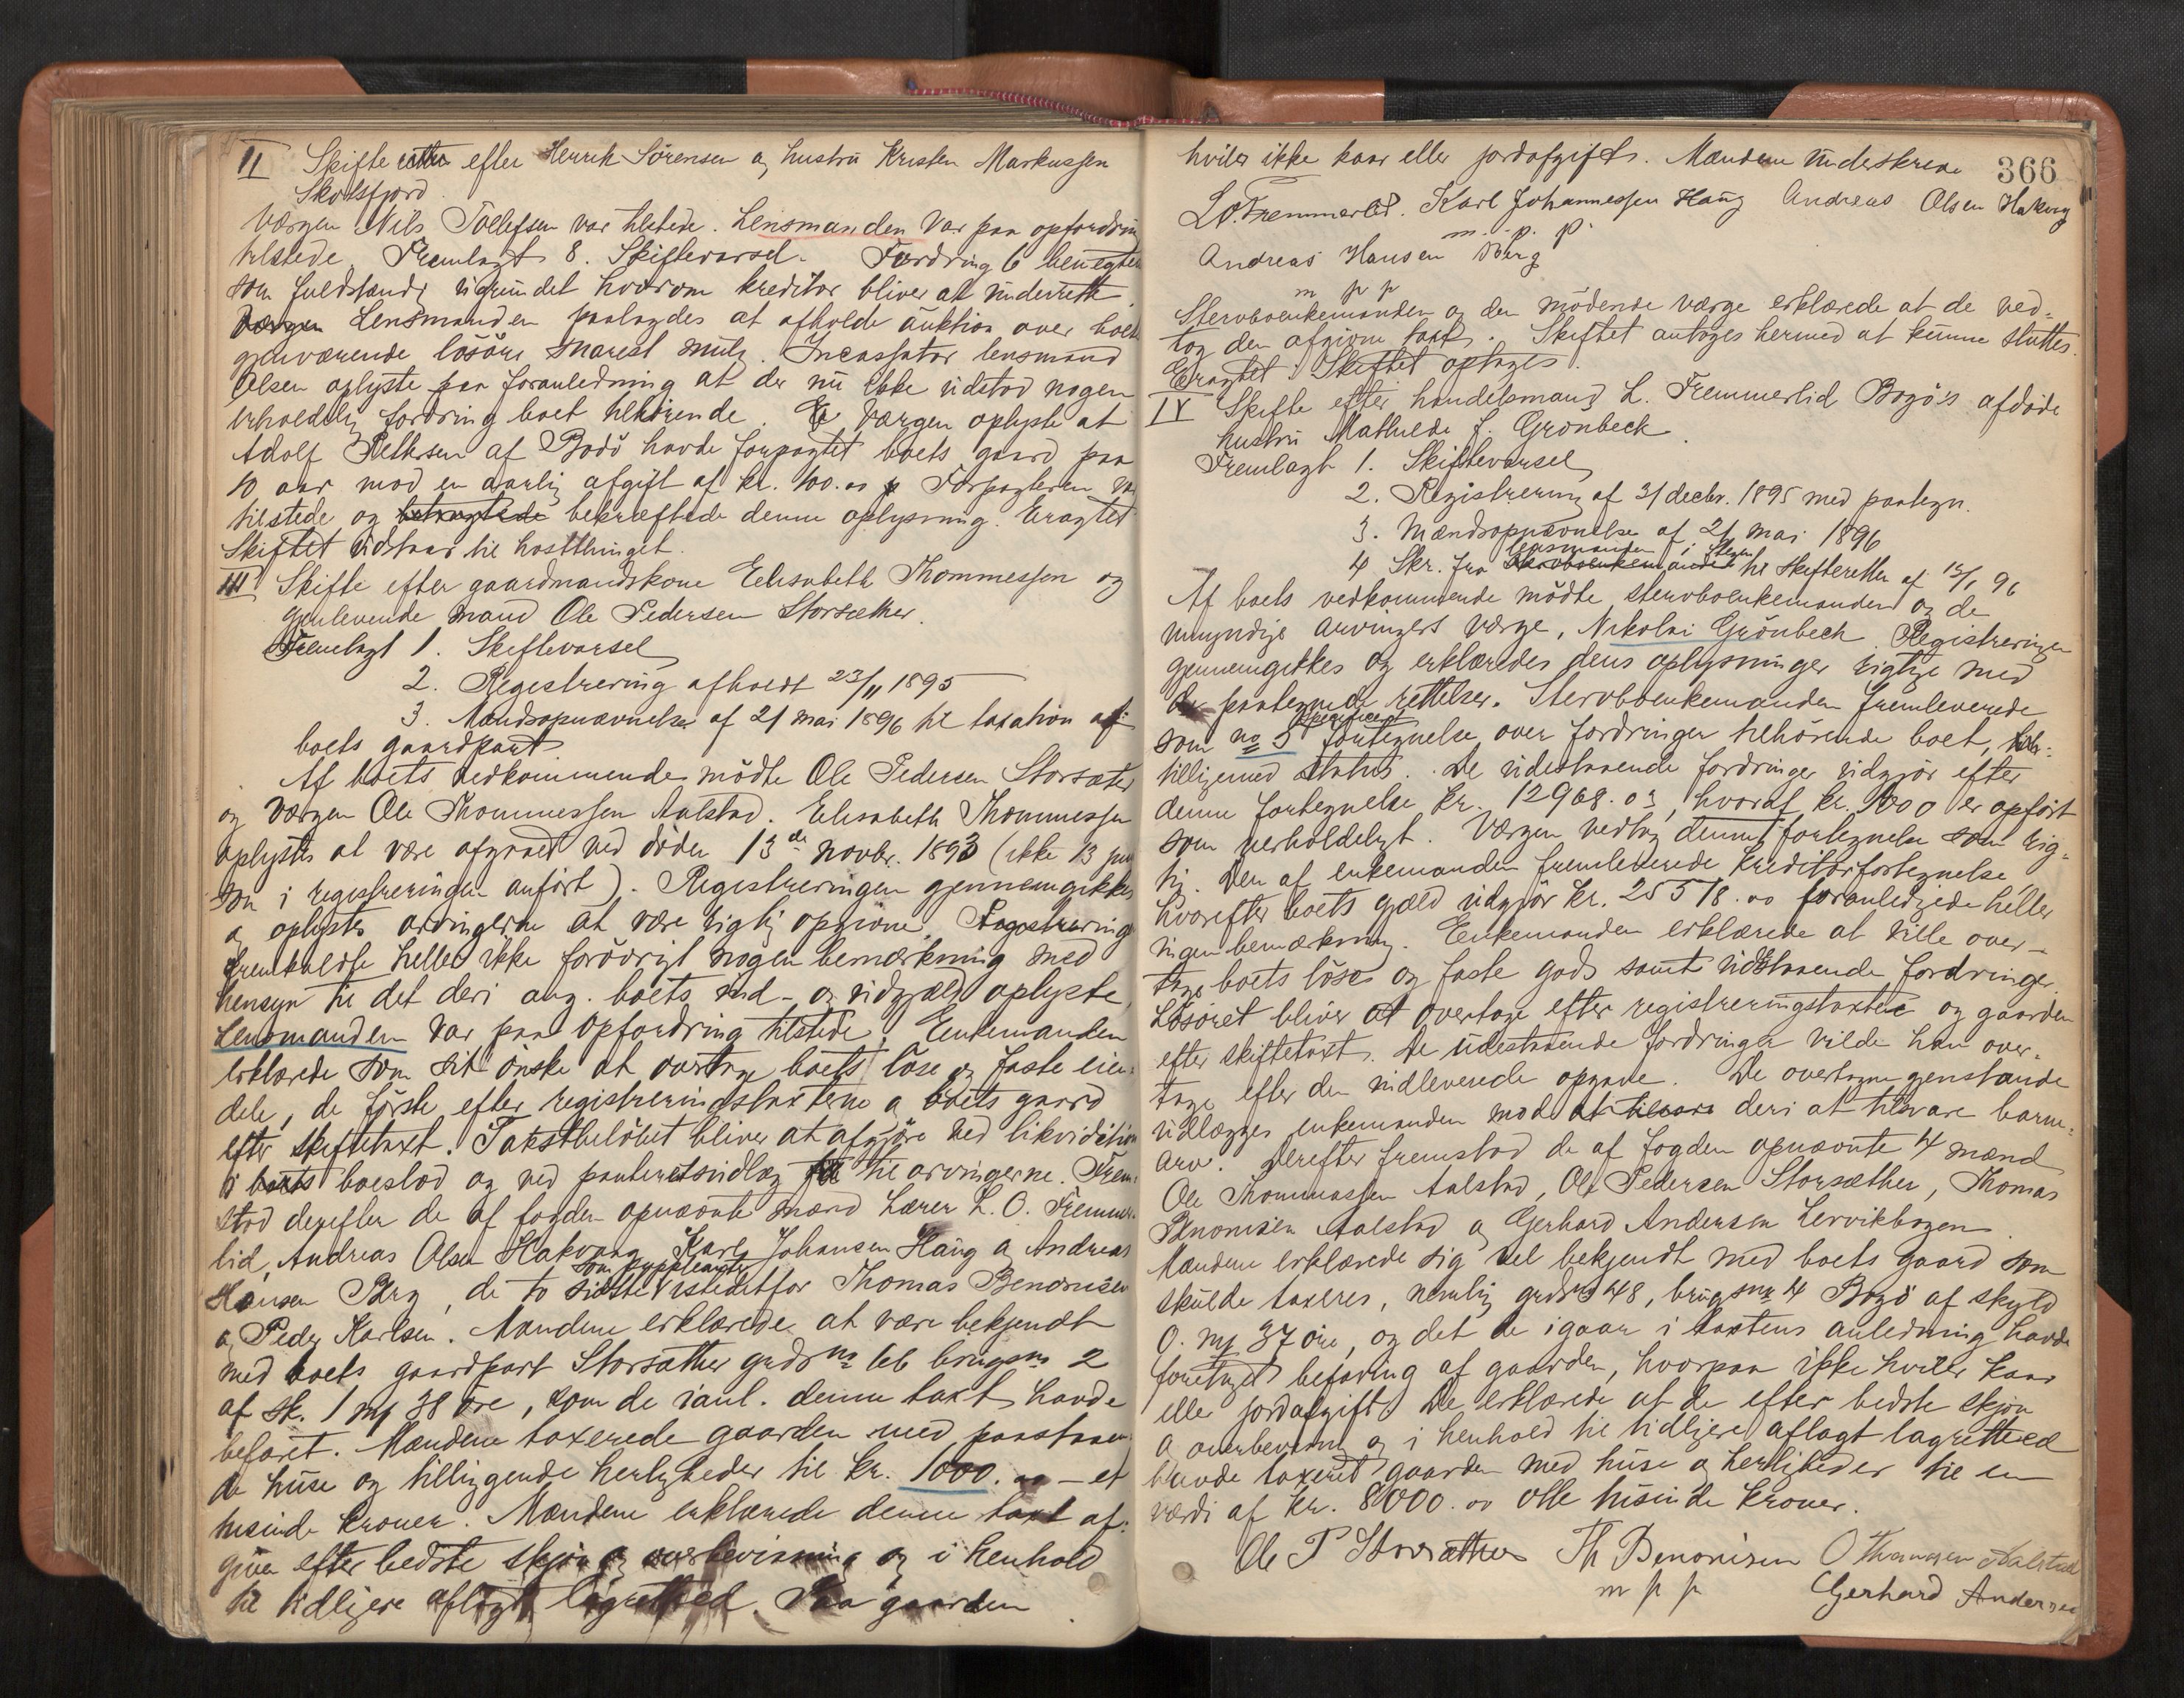 II Skifte efter Henrik Sørensen og hustru Kristen Markussen
Skotsfjord.
Værgen Nils Tollefsen var tilstede. Lensmanden var paa opfordring
tilstede. Fremlagt 8. Skiftevarsel. Fordring 6 benegtes
som fuldstændig ugrundet hvorom kreditor bliver at underrette.
Lensmanden paalagdes at afholde auktion over boets
gjenværende løsøre snarest mulig. Incassator lensmand
Olsen oplyste paa foranledning at der nu ikke udstod nogen
erholdelig fordring boet tilhørende. Værgen oplyste at
Adolf Pettersen af Bodö havde forpagtet boets gaard paa
10 aar mod en aarlig afgift af kr. 100.00 Forpagteren var
tilstede og bekræftede denne oplysning. Eragtet
Skiftet udstaar til høstthinget.
III Skifte efter gaardmandskone Elisabeth Thommessen og
gjenlevende mand Ole Pedersen Storsæther.
Fremlagt 1. Skiftevarsel
2. Registrering afholdt 23/11 1895
3. Mandsopnævnelse af 21 mai 1896 til taxation af
boets gaardpart.
Af boets vedkommende mødte Ole Pedersen Storsæter
og værgen Ole Thommessen Aalstad. Elisabeth Thommessen
oplystes at være afgaaet ved døden 13de novbr. 1893 (ikke 13 juni
som i registreringen anført). Registreringen gjennemgikkes
og oplystes arvingerne at være rigtig opgivne. Registrering
fremkaldte heller ikke forøvrigt nogen bemærkning med
hensyn til det deri ang. boets ind- og udgjæld oplyste.
Lensmanden var paa opfordring tilstede. Enkemanden
erklærede som sit ønske at overtage boets løse og faste eien-
dele, de første efter registreringstaxterne og boets gaard
efter skiftetaxt. Takstbeløbet bliver at afgjøre ved likvidation
i boets boeslod og ved panteretsudlæg til arvingerne. Frem-
stod derefter de af fogden opnævnte mænd Lærer L. O. Fremmer-
lid, Andreas Olsen Hakvaag, Karl Johansen Haug og Andreas
Hansen Berg, de to sidste som suppleanter istedetfor Thomas Benonisen
og Peder Karlsen. Mændene erklærede at være bekjendt
med boets gaardpart Storsæther grds no 66 brugsno 2
af sk. 1 mk 38 øre, som de i anl. denne taxt havde
befaret. Mændene taxerede gaarden med paastaaen-
de huse og tilliggende herligheder til kr. 1000.00 – et
tusinde kroner. Mændene erklærede denne taxt af-
given efter bedste skjøn og overbevisning og i henhold
til tidligere aflagt lagretted. Paa gaarden
366
hviler ikke kaar eller jordafgift. Mændene underskrev
L.O. Fremmerlid. Karl Johannessen Haug Andreas Olsen Hakvog
m. p. p.
Andreas Hansen Berg
m p p
Stervboenkemanden og den mødende værge erklærede at de ved-
tog den afgivne taxt. Skiftet antages hermed at kunne sluttes.
Eragtet: Skiftet optages.
IV Skifte efter handelsmand L. Fremmerlid Bogö's afdøde
hustru Mathilde f. Grønbeck.
Fremlagt 1. Skiftevarsel
2. Registrering af 31 decbr. 1895 med paategn.
3. Mandsopnævnelse af 21 mai 1896
4 Skr. fra lensmanden i Stegen til Skifteretten af 15/1 96
Af boets vedkommende mødte stervboenkemanden og de
umyndige arvingers værge, Nikolai Grönbech. Registreringen
gjennemgikkes og erklæredes dens oplysninger rigtige med
de paategnede rettelser. Stervboenkemanden fremleverede
som no 5 specificeret fortegnelse over fordringer tilhørende boet,
tilligemed status. De udestaaende fordringer udgjør efter
denne fortegnelse kr. 12968.03, hvoraf kr. 1000 er opført
som uerholdeligt. Værgen vedtog denne fortegnelse som rig-
tig. Den af enkemanden fremleverede kreditorfortegnelse,
hvorefter boets gjæld udgjør kr. 25518.00 foranledigede heller
ingen bemærkning. Enkemanden erklærede at ville over-
tage boets løse og faste gods samt udstaaende fordringer.
Løsøret bliver at overtage efter registreringstaxten og gaarden
efter skiftetaxt. De udestaaende fordringer vilde han over-
tage efter den indleverede opgave. De overtagne genstande
udlægges enkemanden mod deri at tilsvare barne-
arv. Derefter fremstod de af fogden opnævnte 4 mænd
Ole Thommassen Aalstad, Ole Pedersen Storsæther, Thomas
Benonisen Aalstad og Gerhard Andersen Leirvikbogen.
Mændene erklærede sig vel bekjendt med boets gaard som
skulde taxeres, nemlig grds no 48, brugsno 4 Bogö af skyld
0. mk 37 øre, og det de igaar i taxtens anledning havde
foretaget befaring af gaarden, hvorpaa ikke hviler kaar
eller jordafgift. De erklærede at de efter bedste skjøn
og overbevisning og i henhold til tidligere aflagt lagretted
havde taxeret gaarden med huse og herligheder til en
værdi af kr. 8000.00 otte tusinde kroner.
Ole P Storsæther Th Benonisen O Thomassen Aalstad
m p p Gerhard Andersen